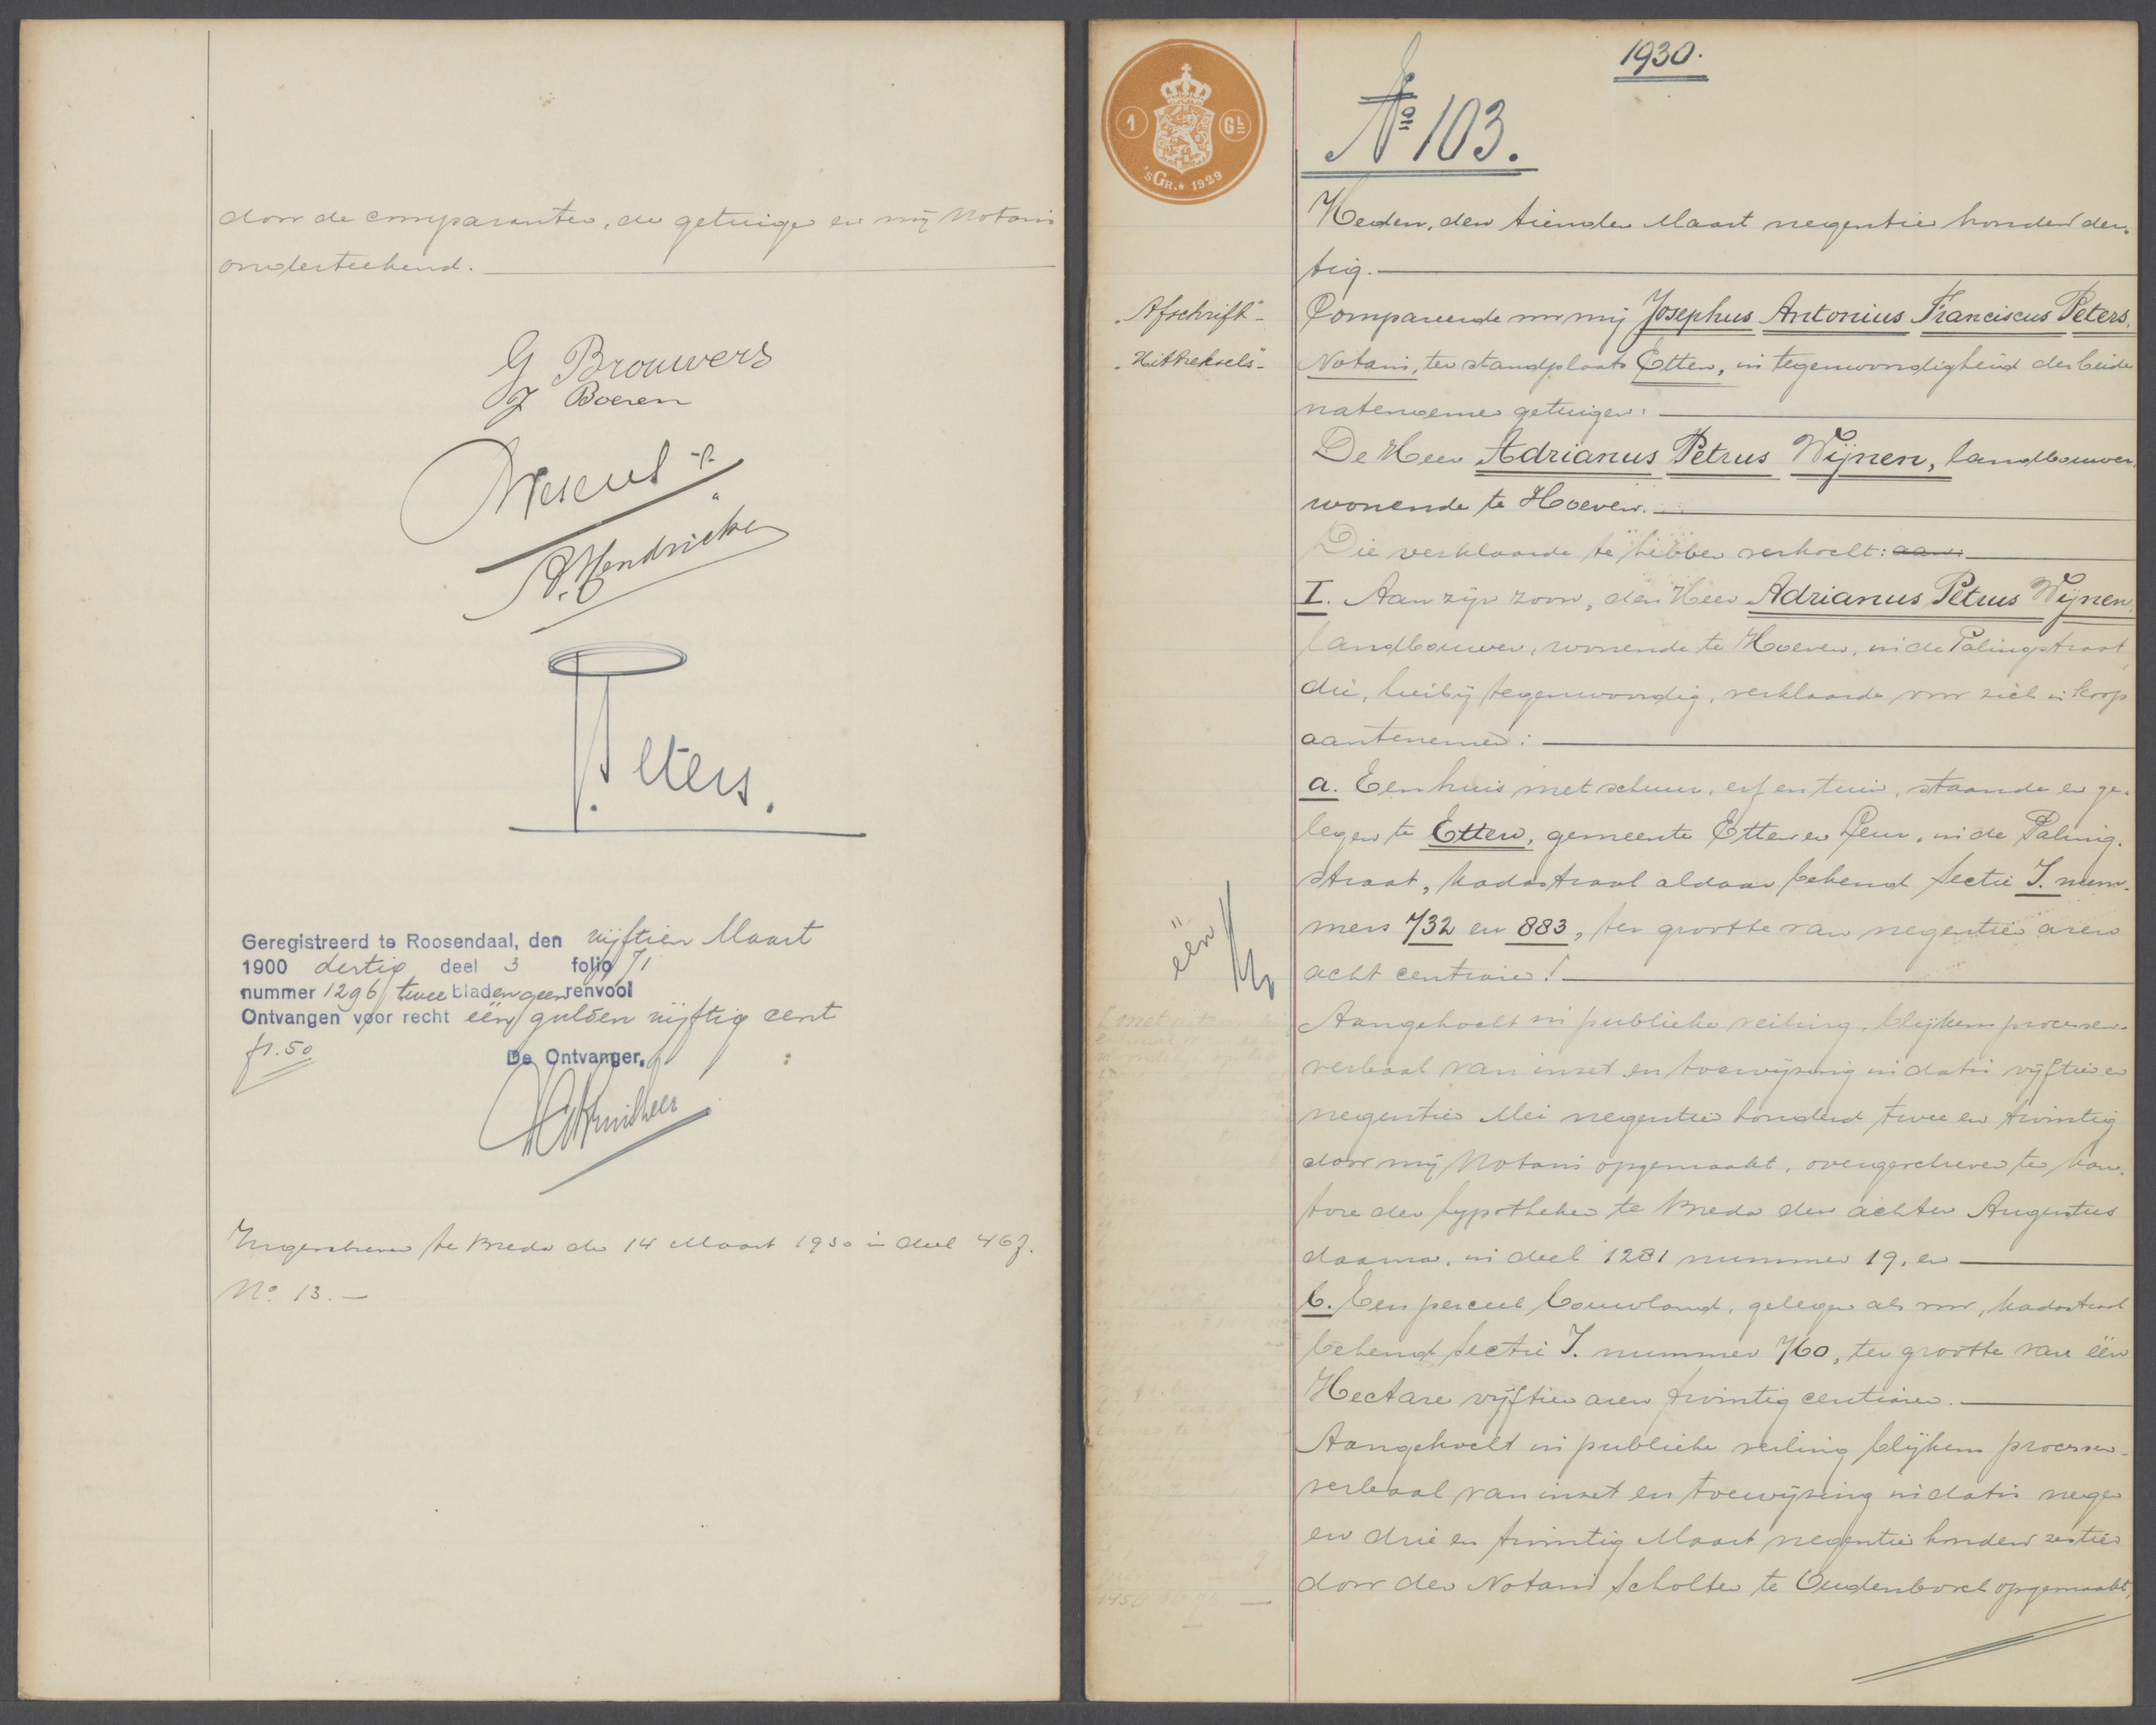 door de comparanten, de getuigen en mij Notaris
onderteekend.
G Brouwers
J Boeren
A Hendrickx
Peters.
Geregistreerd te Roosendaal, den vijftien Maart
1900 dertig deel 3 folio 71
nummer 1296 twee bladen geen renvooi
Ontvangen voor recht één gulden vijftig cent
f1.50
De Ontvanger,
Ingeschreven te Breda den 14 Maart 1930 in deel 467.
No 13.—
1 GL
'sGR.★1929
1930.
No 103.
Heden, den tienden Maart negentien honderd der-
tig.
"Afschrift"
Compareerde voor mij Josephus Antonius Franciscus Peters,
"Uittreksels"
Notaris, ter standplaats Etten, in tegenwoordigheid der beide
natenoemen getuigen:
De Heer Adrianus Petrus Wijnen, landbouwer,
wonende te Hoeven.
Die verklaarde te hebben verkocht: aan:
I. Aan zijn zoon, den Heer Adrianus Petrus Wijnen,
landbouwer, wonende te Hoeven, in de Palingstraat,
die, hierbij tegenwoordig, verklaarde voor zich in koop
aantenemen:
a. Een huis met schuur, erf en tuin, staande en ge-
legen te Etten, gemeente Etten en Leur, in de Paling-
straat, kadastraal aldaar bekend sectie I. num-
mers 732 en 883, ter grootte van negentien aren
één
acht centiare!
Aangekocht in publieke veiling, blijkens processen-
verbaal van inzet en toewijzing in datis vijftien en
negentien Mei negentien honderd twee en twintig
door mij Notaris opgemaakt, overgeschreven ten kan-
tore der hypotheken te Breda den achten Augustus
daarna, in deel 1281 nummer 19, en
b. Een perceel bouwland, gelegen als voor, kadastraal
bekend sectie I. nummer 760, ter grootte van één
Hectare vijftien aren twintig centiaren.
Aangekocht in publieke veiling blijkens processen-
verbaal van inzet en toewijzing in datis negen
en drie en twintig Maart negentien honderd zestien
door den Notaris Scholten te Oudenbosch opgemaakt,